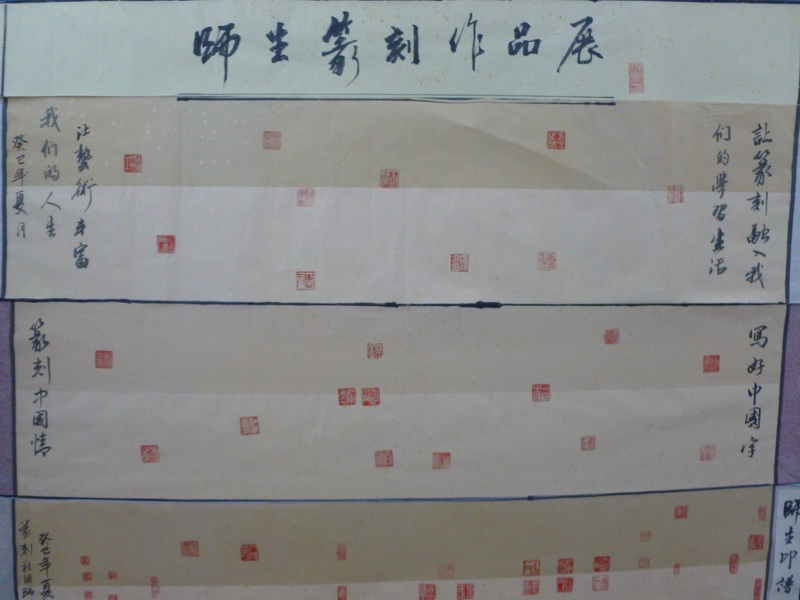 師生篆刻作品展
讓篆刻融入我
们的學習生活
让藝術丰富
我们的人生
癸巳年夏月
寫好中國字
篆刻中國情
師生印譜
癸巳年夏
篆刻社团師